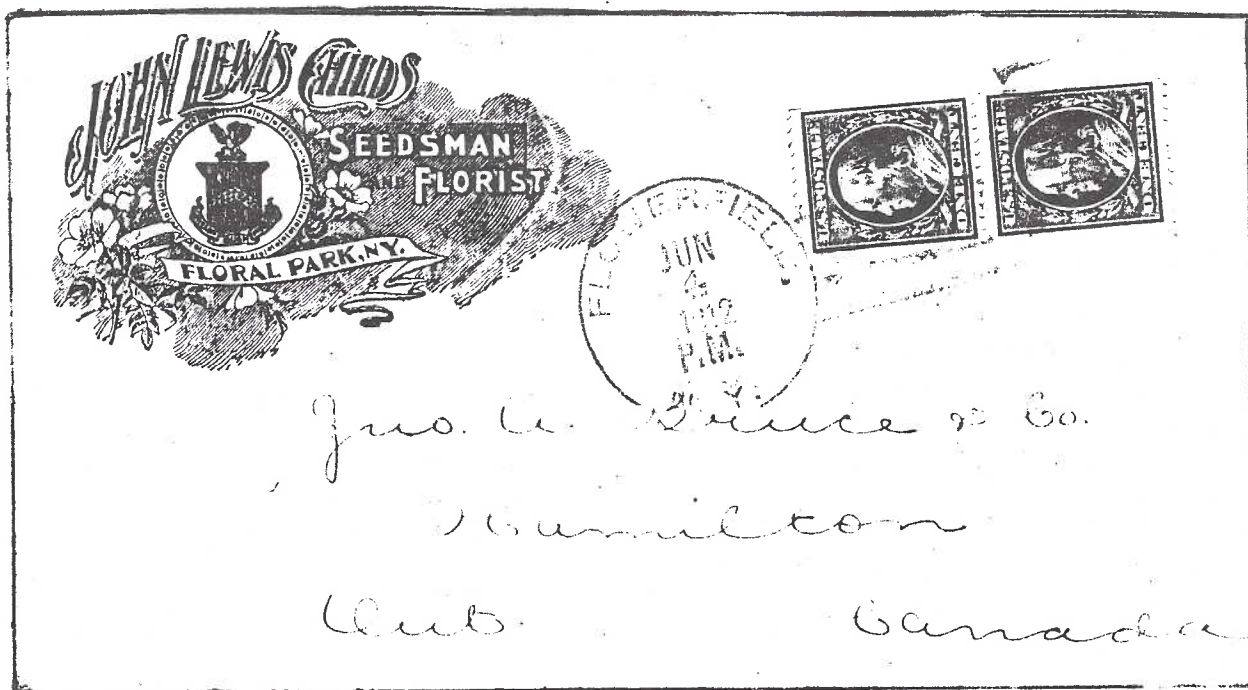 JOHN LEWIS CHILDS
SEEDSMAN
FLORIST
FLORAL PARK, N.Y.
FLOWERFIELD,
JUN
4
1912
P.M.
N.Y.
U.S. POSTAGE
U.S. POSTAGE
Jno. A. Bruce & Co.
Hamilton
Ont. Canada